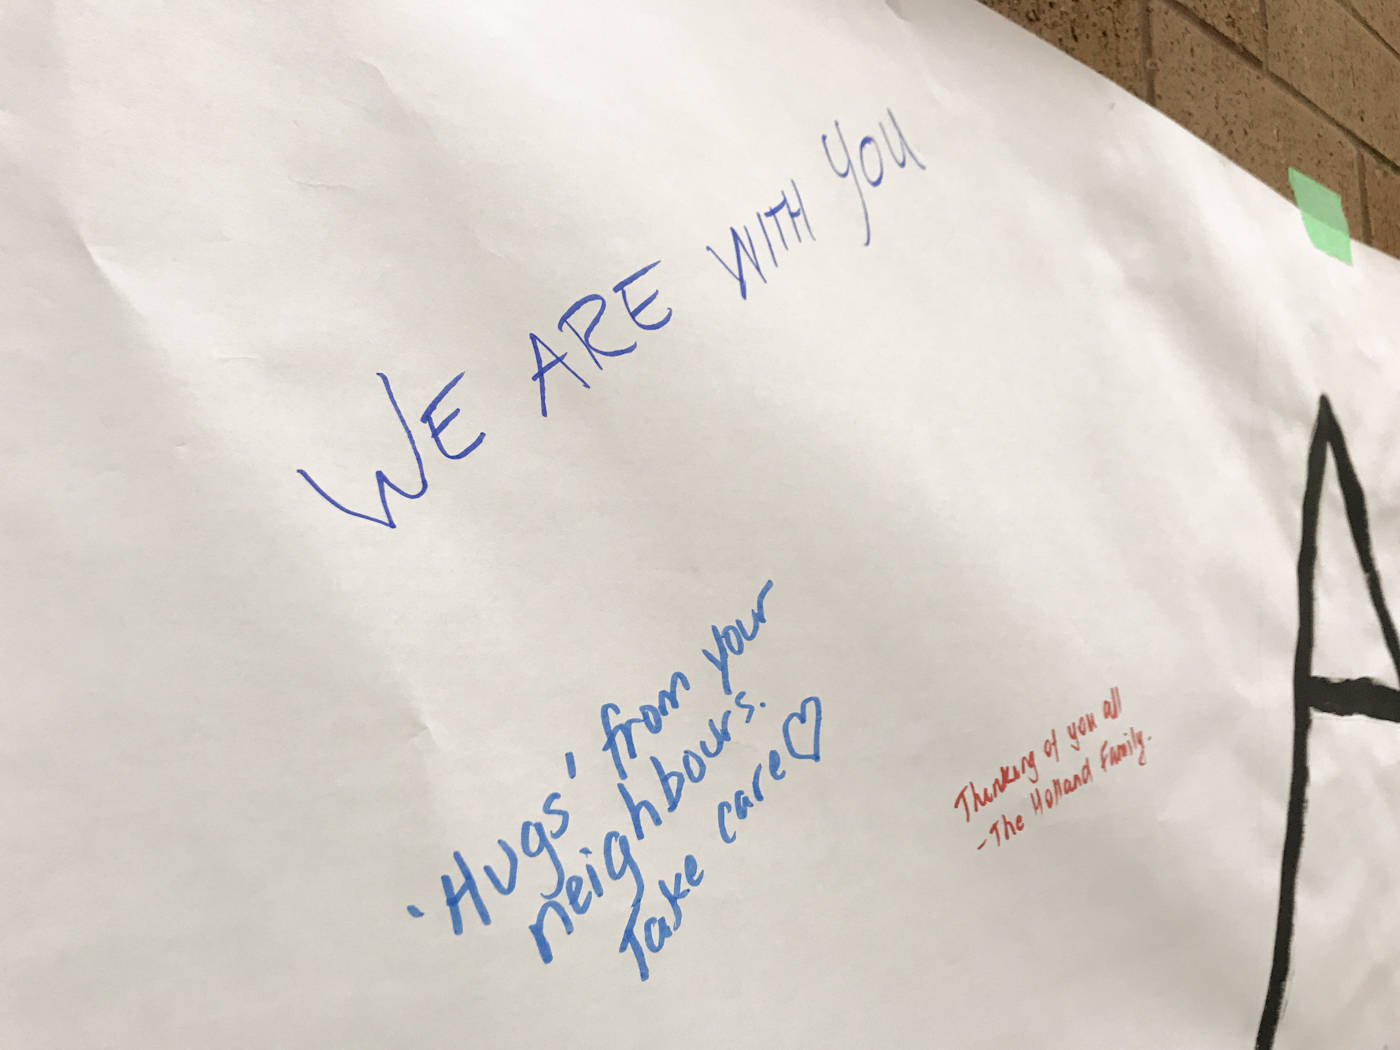 WE ARE WITH YOU
'Hugs' from your
neighbours.
Take care♡
Thinking of you all
-The Holland Family.
A